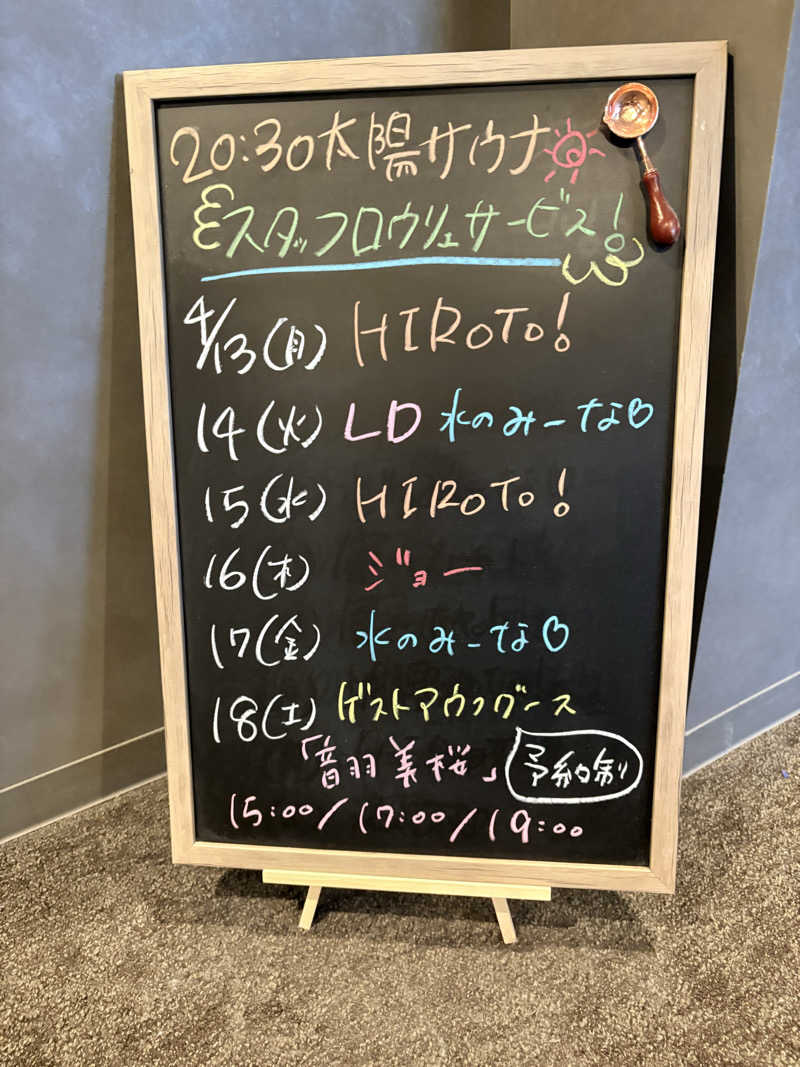 20:30太陽サウナ
スタッフロウリュサービス!
4/13(月) HIROTO!
14(火) LD 水のみーな♡
15(水) HIROTO!
16(木) ジョー
17(金) 水のみーな♡
18(土) ゲストアウフグース
「音羽美桜」 予約制
15:00/17:00/19:00